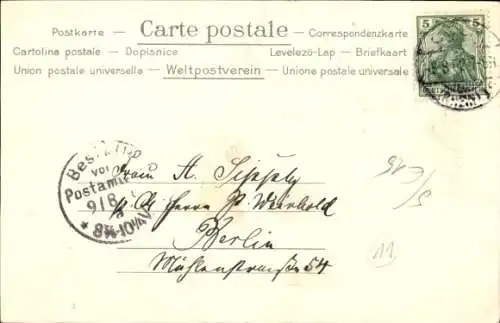 Postkarte — Carte postale — Correspondenzkarte
Cartolina postale — Dopisnice Levelező-Lap — Briefkaart
Union postale universelle — Weltpostverein — Unione postale universale
5 5
Bestellt
vom
Postamte
9/8
8¾-10½V
Frau A.
p. Ad. Herrn P.
Berlin
Mühlenstraße 54
11